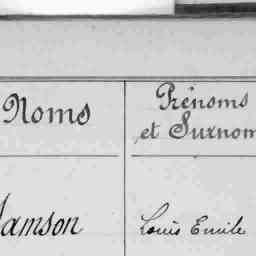 Noms
Prénoms
et Surnom
Samson
Louis Emile